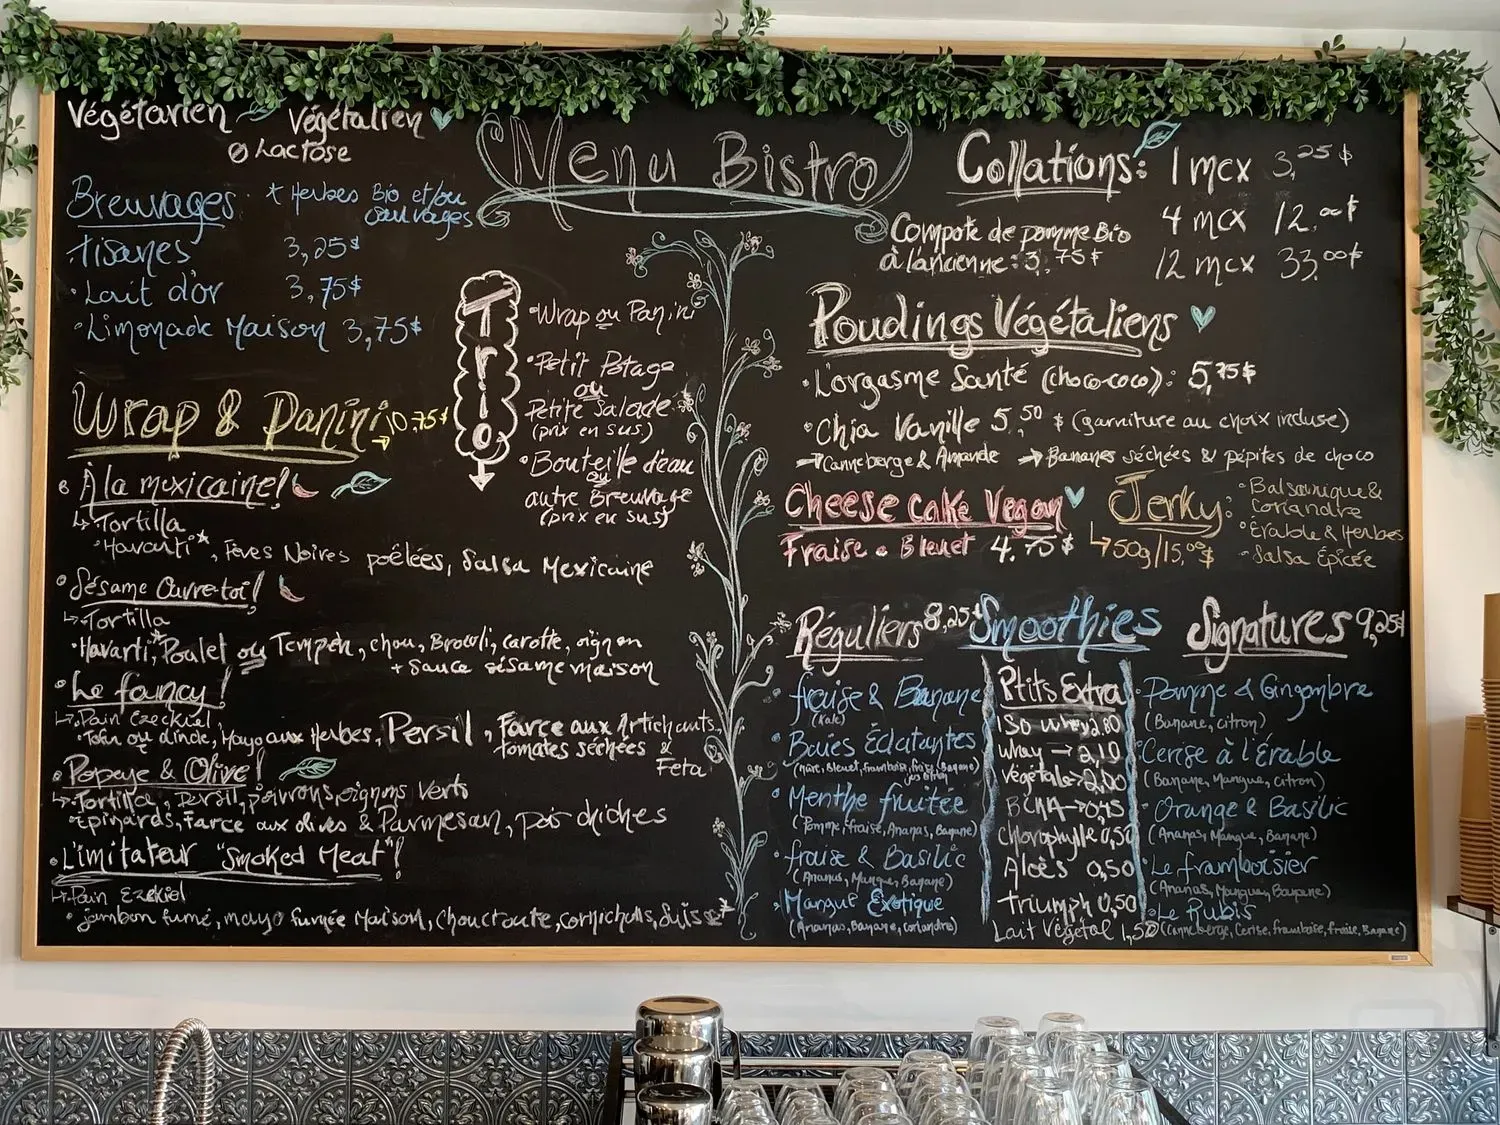 Végétarien Végétalien
Ø Lactose
Menu Bistro
Breuvages
* Herbes Bio et/ou
sauvages
tisanes 3,25$
• Lait d'or 3,75$
• Limonade Maison 3,75$
Trio
• Wrap ou Panini
• Petit Potage
ou
Petite Salade
(prix en sus.)
• Bouteille d'eau
ou
autre Breuvage
(prix en sus)
Wrap & Panini 10.75$
À la mexicaine!
↳ Tortilla
• Havarti*, Fèves Noires poêlées, Salsa Mexicaine
• Sésame Ouvre-toi!
↳ Tortilla
• Havarti,* Poulet ou Tempeh, chou, Brocoli, carotte, oignon
+ Sauce sésame maison
• Le fancy!
↳ Pain Ezekiel
• Tofu ou dinde, Mayo aux Herbes, Persil, Farce aux Artichauts,
tomates séchées &
Feta
• Popeye & Olive!
↳ Tortilla, persil, poivrons, oignons verts
• Épinards, Farce aux olives & Parmesan, pois chiches
• L'imitateur "Smoked Meat"!
↳ Pain Ezekiel
• jambon fumé, mayo fumée Maison, Choucroute, cornichons, suisse*
Collations: 1 mcx 3,25$
4 mcx 12.00$
12 mcx 33,00$
Compote de pomme Bio
à l'ancienne: 3,75$
Poudings Végétaliens
• L'orgasme Santé (choco-coco): 5,75$
• Chia Vanille 5,50 $ (garniture au choix incluse)
→ Canneberge & Amande → Bananes séchées & pépites de choco
Cheese cake Vegan
Fraise • Bleuet 4.75$
Jerky:
↳ 50g/15,00$
• Balsamique &
Coriandre
• Érable & Herbes
• Salsa Épicée
Smoothies
Réguliers 8,25$
fraise & Banane
(Kale)
• Baies Éclatantes
(Mûre, Bleuet, framboise, fraise, Banane)
• Menthe fruitée
(Pomme, fraise, Ananas, Banane)
• fraise & Basilic
(Ananas, Mangue, Banane)
• Mangue Exotique
(Ananas, Banane, Coriandre)
Ptits Extra
Iso Whey 2.80
Whey → 2,10
Végétale → 2,00
BCAA → 0,45
Chlorophylle 0,50
Aloès 0,50
Triumph 0,50
Lait Végétal 1,50
Signatures 9,25$
• Pomme & Gingembre
(Banane, Citron)
• Cerise à l'Érable
(Banane, Mangue, Citron)
• Orange & Basilic
(Ananas, Mangue, Banane)
• Le framboisier
(Ananas, Mangue, Banane)
• Le Rubis
(Canneberge, Cerise, framboise, fraise, Banane)